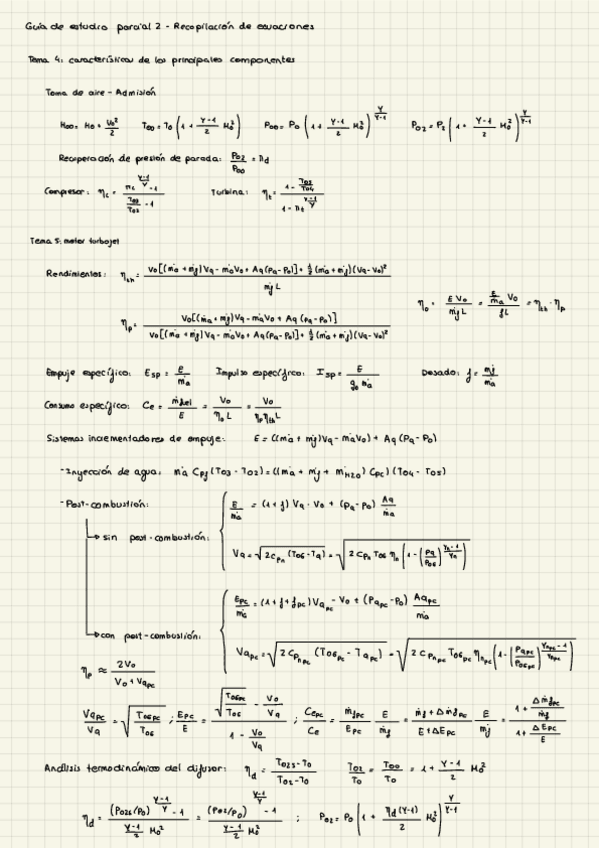 Guía de estudio parcial 2 - Recopilación de ecuaciones
Tema 4: características de los principales componentes
Toma de aire - Admisión
H₀₀ = H₀ + V₀²/2    T₀₀ = T₀ (1 + (γ-1)/2 M₀²)    P₀₀ = P₀ (1 + (γ-1)/2 M₀²)^(γ/(γ-1))    P₀₂ = P₂ (1 + (γ-1)/2 M₀²)^(γ/(γ-1))
Recuperación de presión de parada: P₀₂/P₀₀ = π_d
Compresor: η_c = (π_c^((γ-1)/γ) - 1)/(T₀₃/T₀₂ - 1)    Turbina: η_t = (1 - T₀₅/T₀₄)/(1 - π_t^((γ-1)/γ))
Tema 5: motor turbojet
Rendimientos: η_th = (V₀[(ṁa + ṁf)Vq - ṁaV₀ + Aq(Pq - P₀)] + ½(ṁa + ṁf)(Vq - V₀)²)/(ṁf L)
η₀ = E V₀/(ṁf L) = (E/ṁa V₀)/(fL) = η_th · η_p
η_p = (V₀[(ṁa + ṁf)Vq - ṁaV₀ + Aq(Pq - P₀)])/(V₀[(ṁa + ṁf)Vq - ṁaV₀ + Aq(Pq - P₀)] + ½(ṁa + ṁf)(Vq - V₀)²)
Empuje específico: E_SP = E/ṁa    Impulso específico: I_SP = E/(g₀ ṁa)    Dosado: f = ṁf/ṁa
Consumo específico: Ce = ṁfuel/E = V₀/(η₀ L) = V₀/(η_p η_th L)
Sistemas incrementadores de empuje: E = ((ṁa + ṁf)Vq - ṁaV₀) + Aq (Pq - P₀)
-Inyección de agua: ṁa Cpf (T₀₃ - T₀₂) = ((ṁa + ṁf + ṁH₂O) Cpc) (T₀₄ - T₀₅)
-Post-combustión:
E/ṁa = (1 + f) Vq - V₀ + (Pq - P₀) Aq/ṁa
sin post-combustión:
Vq = √(2 Cpn (T₀₆ - Tq)) = √(2 Cpn T₀₆ ηn [1 - (Pq/P₀₆)^((γn-1)/γn)])
Epc/ṁa = (1 + f + fpc) Vqpc - V₀ + (Pqpc - P₀) Aqpc/ṁa
con post-combustión:
Vqpc = √(2 Cpnpc (T₀₆pc - Tqpc)) = √(2 Cpnpc T₀₆pc ηnpc [1 - (Pqpc/P₀₆pc)^((γnpc-1)/γnpc)])
η_p ≈ 2V₀/(V₀ + Vqpc)
Vqpc/Vq = √(T₀₆pc/T₀₆) ; Epc/E = (√(T₀₆pc/T₀₆) - V₀/Vq)/(1 - V₀/Vq) ; Cepc/Ce = ṁfpc/Epc E/ṁf = (ṁf + Δṁfpc)/(E + ΔEpc) E/ṁf = (1 + Δṁfpc/ṁf)/(1 + ΔEpc/E)
Análisis termodinámico del difusor: η_d = (T₀₂s - T₀)/(T₀₂ - T₀)    T₀₂/T₀ = T₀₀/T₀ = 1 + (γ-1)/2 M₀²
η_d = ((P₀₂s/P₀)^((γ-1)/γ) - 1)/((γ-1)/2 M₀²) = ((P₀₂/P₀)^((γ-1)/γ) - 1)/((γ-1)/2 M₀²) ; P₀₂ = P₀ (1 + η_d (γ-1)/2 M₀²)^(γ/(γ-1))